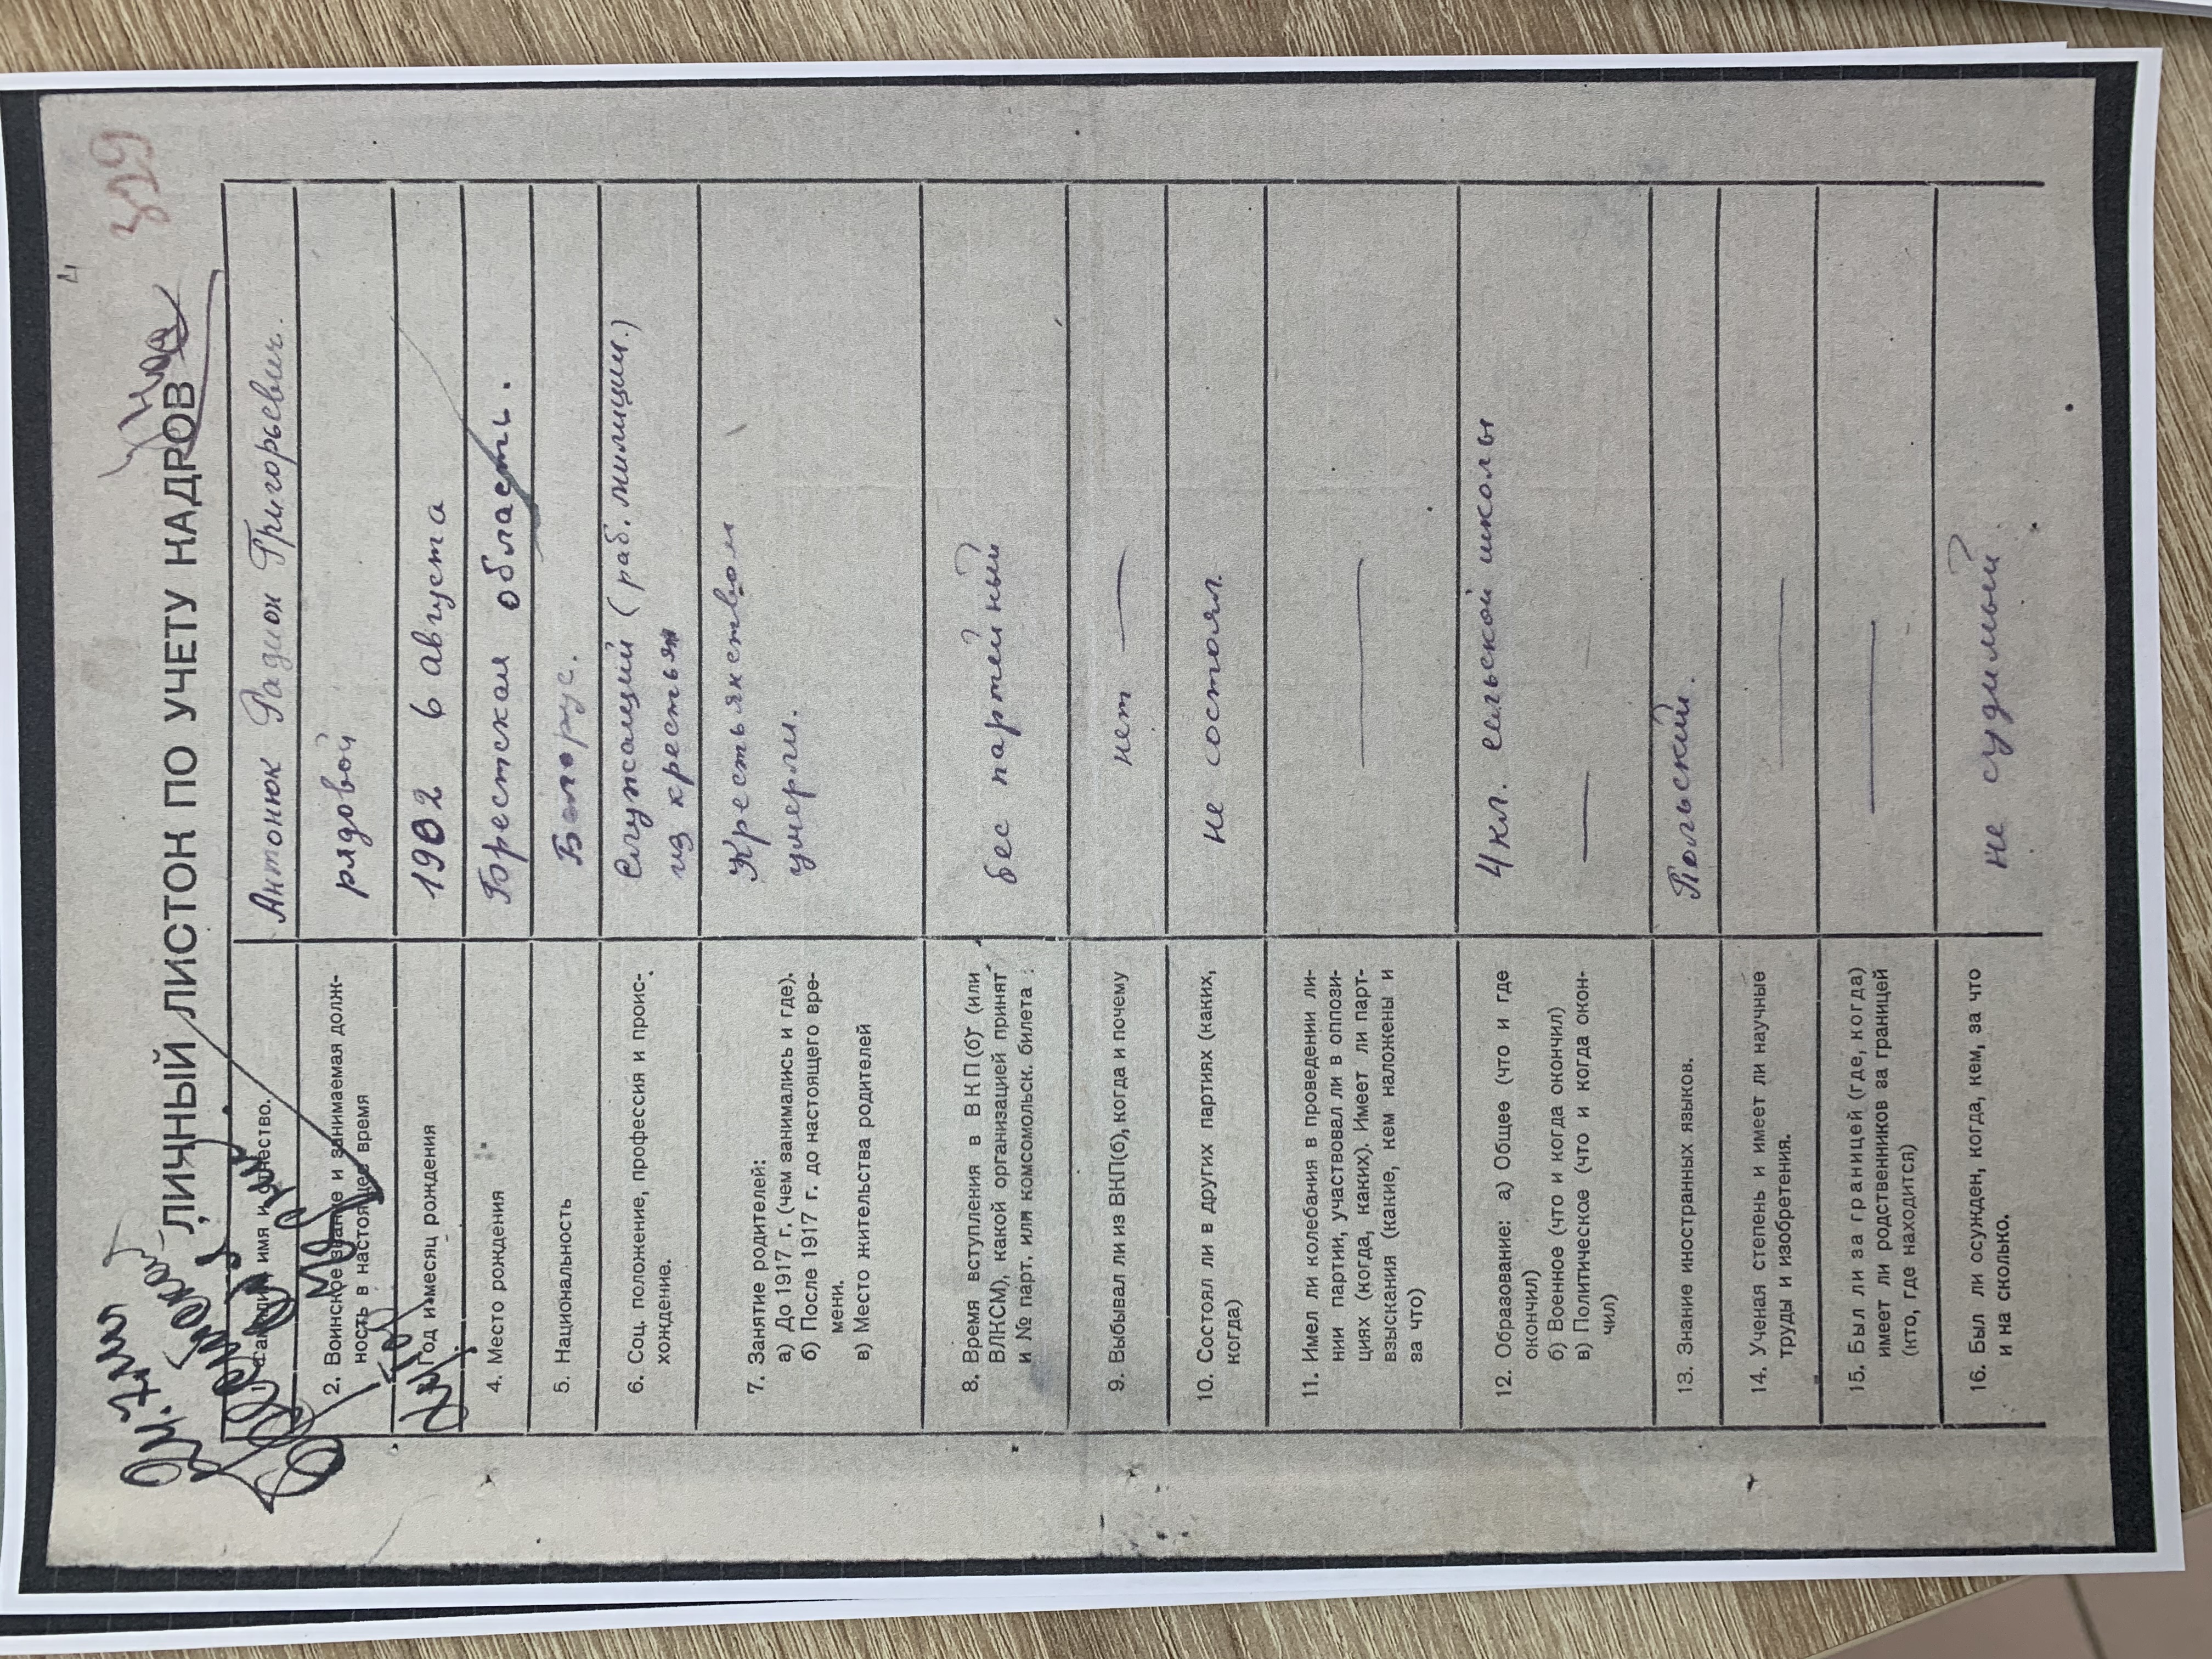 4
329
ЛИЧНЫЙ ЛИСТОК ПО УЧЕТУ КАДРОВ
имя и отчество.
Антонюк Радион Григорьевич.
2. Воинское звание и занимаемая долж-
ность в настоящее время
рядовой
Год и месяц рождения
1902 6 августа
4. Место рождения
Брестская область.
5. Национальность
Белорус.
6. Соц. положение, профессия и проис-
хождение.
Служащий (раб. милиции.)
из крестьян
7. Занятие родителей:
а) До 1917 г. (чем занимались и где).
б) После 1917 г. до настоящего вре-
мени.
в) Место жительства родителей
Крестьянством
умерли.
8. Время вступления в ВКП(б) (или
ВЛКСМ), какой организацией принят
и № парт. или комсомольск. билета
бес партейный
9. Выбывал ли из ВКП(б), когда и почему
нет —
10. Состоял ли в других партиях (каких,
когда)
не состоял.
11. Имел ли колебания в проведении ли-
нии партии, участвовал ли в оппози-
циях (когда, каких). Имеет ли парт-
взыскания (какие, кем наложены и
за что)
—
12. Образование: а) Общее (что и где
окончил)
б) Военное (что и когда окончил)
в) Политическое (что и когда окон-
чил)
4 кл. сельской школы
—
13. Знание иностранных языков.
Польский.
14. Ученая степень и имеет ли научные
труды и изобретения.
—
15. Был ли за границей (где, когда)
имеет ли родственников за границей
(кто, где находится)
—
16. Был ли осужден, когда, кем, за что
и на сколько.
не судимый